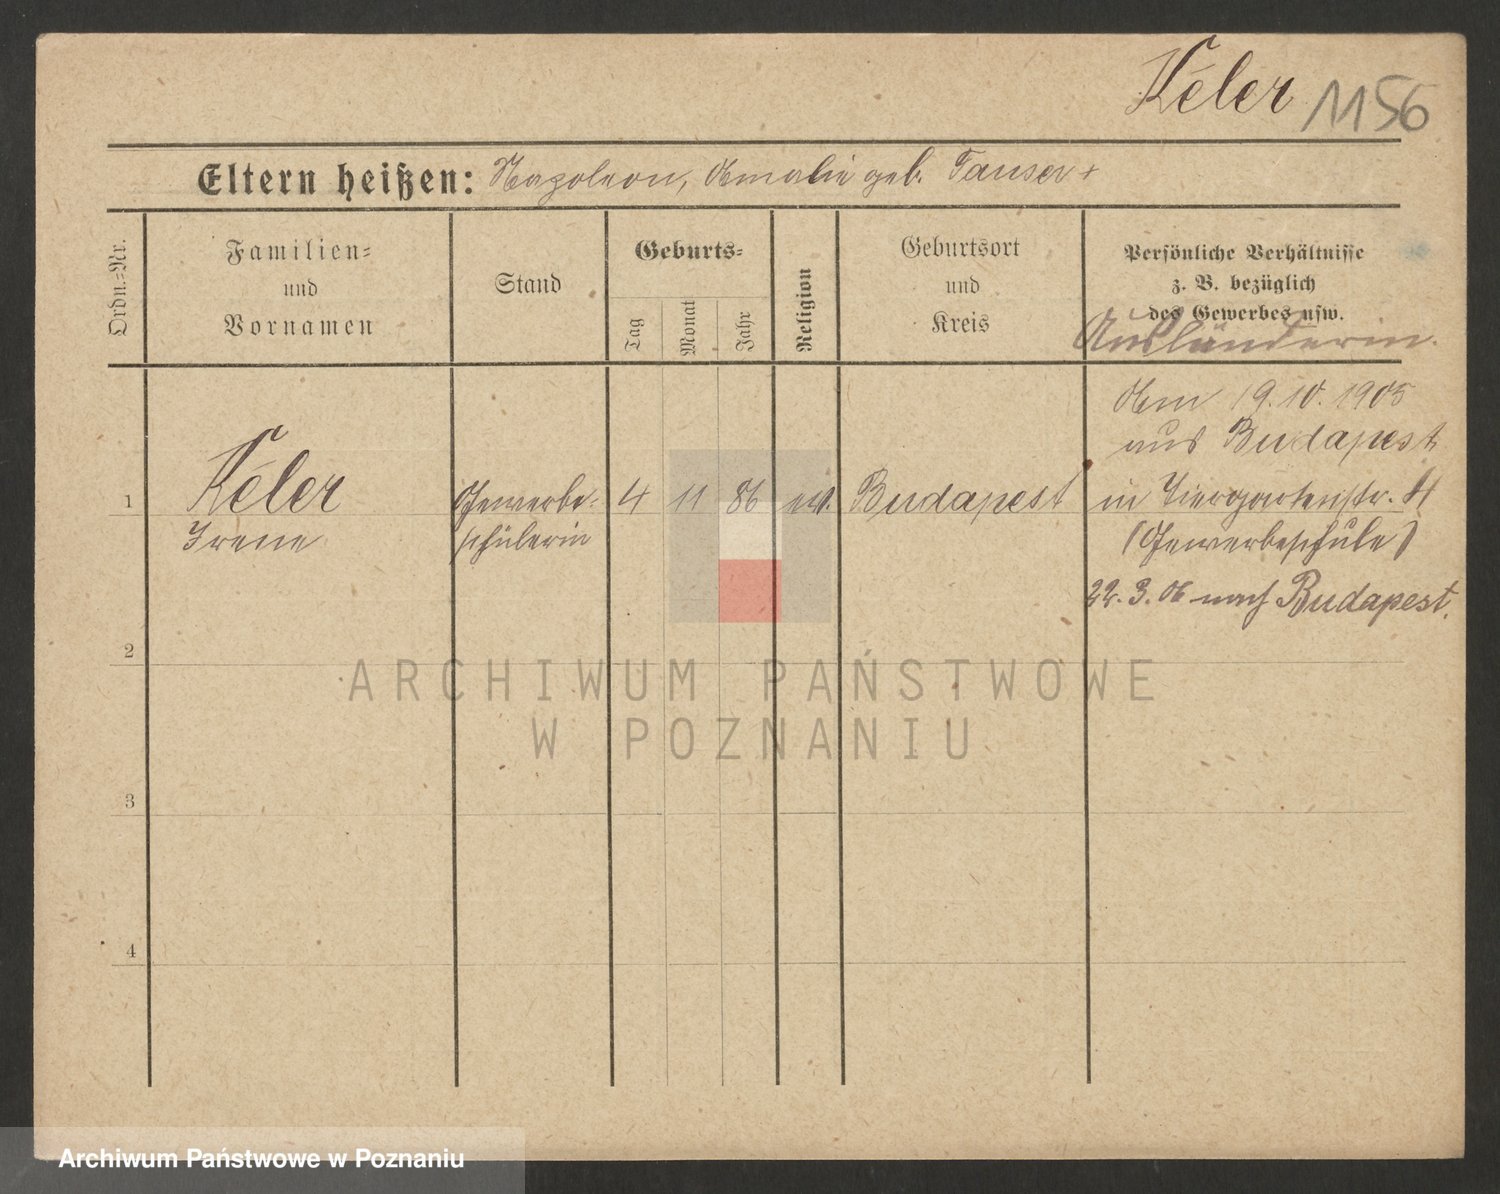 Kéler 1156
Eltern heißen: Napoleon, Amalie geb. Tauser +
Ordn.-Nr.
Familien-
und
Vornamen
Stand
Geburts-
Tag
Monat
Jahr
Religion
Geburtsort
und
Kreis
Persönliche Verhältnisse
z. B. bezüglich
des Gewerbes usw.
Ausländerin.
1
Kéler
Irene
Gewerbe-
schülerin
4 11 86 ev. Budapest
Am 19.10.1905
aus Budapest
in Tiergartenstr. 4
(Gewerbeschule)
22.3.06 nach Budapest.
2
3
4
ARCHIWUM PAŃSTWOWE
W POZNANIU
Archiwum Państwowe w Poznaniu